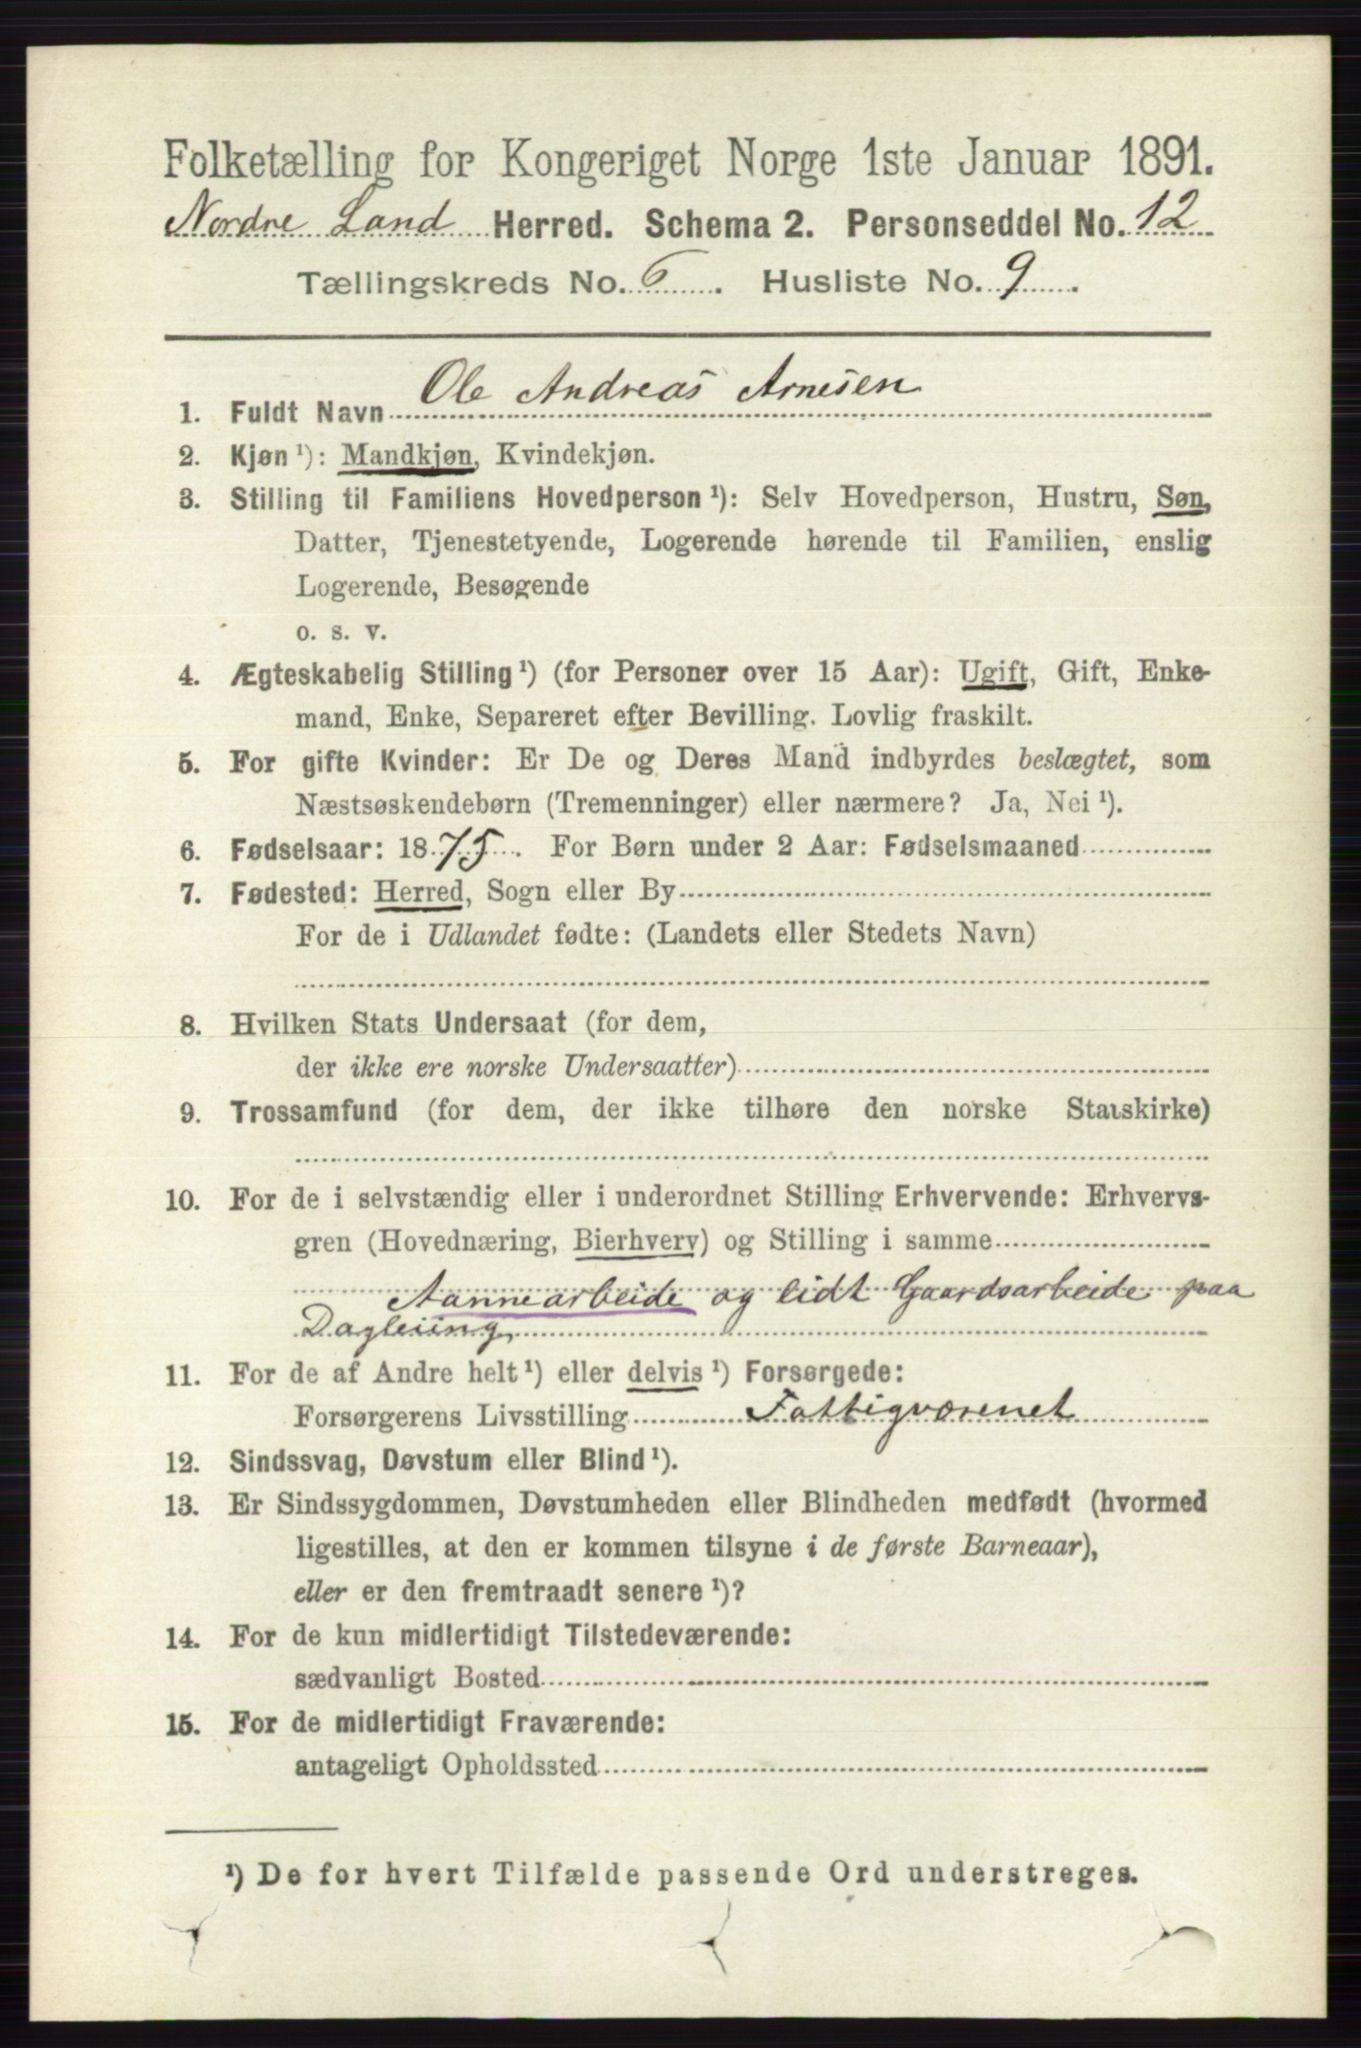 Folketælling for Kongeriget Norge 1ste Januar 1891.
Nordre Land Herred. Schema 2. Personseddel No. 12
Tællingskreds No. 6. Husliste No. 9.
1. Fuldt Navn Ole Andreas Arnesen
2. Kjøn¹): Mandkjøn, Kvindekjøn.
3. Stilling til Familiens Hovedperson¹): Selv Hovedperson, Hustru, Søn,
Datter, Tjenestetyende, Logerende hørende til Familien, enslig
Logerende, Besøgende
o. s. v.
4. Ægteskabelig Stilling¹) (for Personer over 15 Aar): Ugift, Gift, Enke-
mand, Enke, Separeret efter Bevilling. Lovlig fraskilt.
5. For gifte Kvinder: Er De og Deres Mand indbyrdes beslægtet, som
Næstsøskendebørn (Tremenninger) eller nærmere? Ja, Nei¹).
6. Fødselsaar: 1875. For Børn under 2 Aar: Fødselsmaaned
7. Fødested: Herred, Sogn eller By
For de i Udlandet fødte: (Landets eller Stedets Navn)
8. Hvilken Stats Undersaat (for dem,
der ikke ere norske Undersaatter)
9. Trossamfund (for dem, der ikke tilhøre den norske Statskirke)
10. For de i selvstændig eller i underordnet Stilling Erhvervende: Erhvervs-
gren (Hovednæring, Bierhverv) og Stilling i samme
Aannearbeide og lidt Gaardsarbeide paa
Dagleiing
11. For de af Andre helt¹) eller delvis¹) Forsørgede:
Forsørgerens Livsstilling Fattigvæsenet
12. Sindssvag, Døvstum eller Blind¹).
13. Er Sindssygdommen, Døvstumheden eller Blindheden medfødt (hvormed
ligestilles, at den er kommen tilsyne i de første Barneaar),
eller er den fremtraadt senere¹)?
14. For de kun midlertidigt Tilstedeværende:
sædvanligt Bosted
15. For de midlertidigt Fraværende:
antageligt Opholdssted
¹) De for hvert Tilfælde passende Ord understreges.